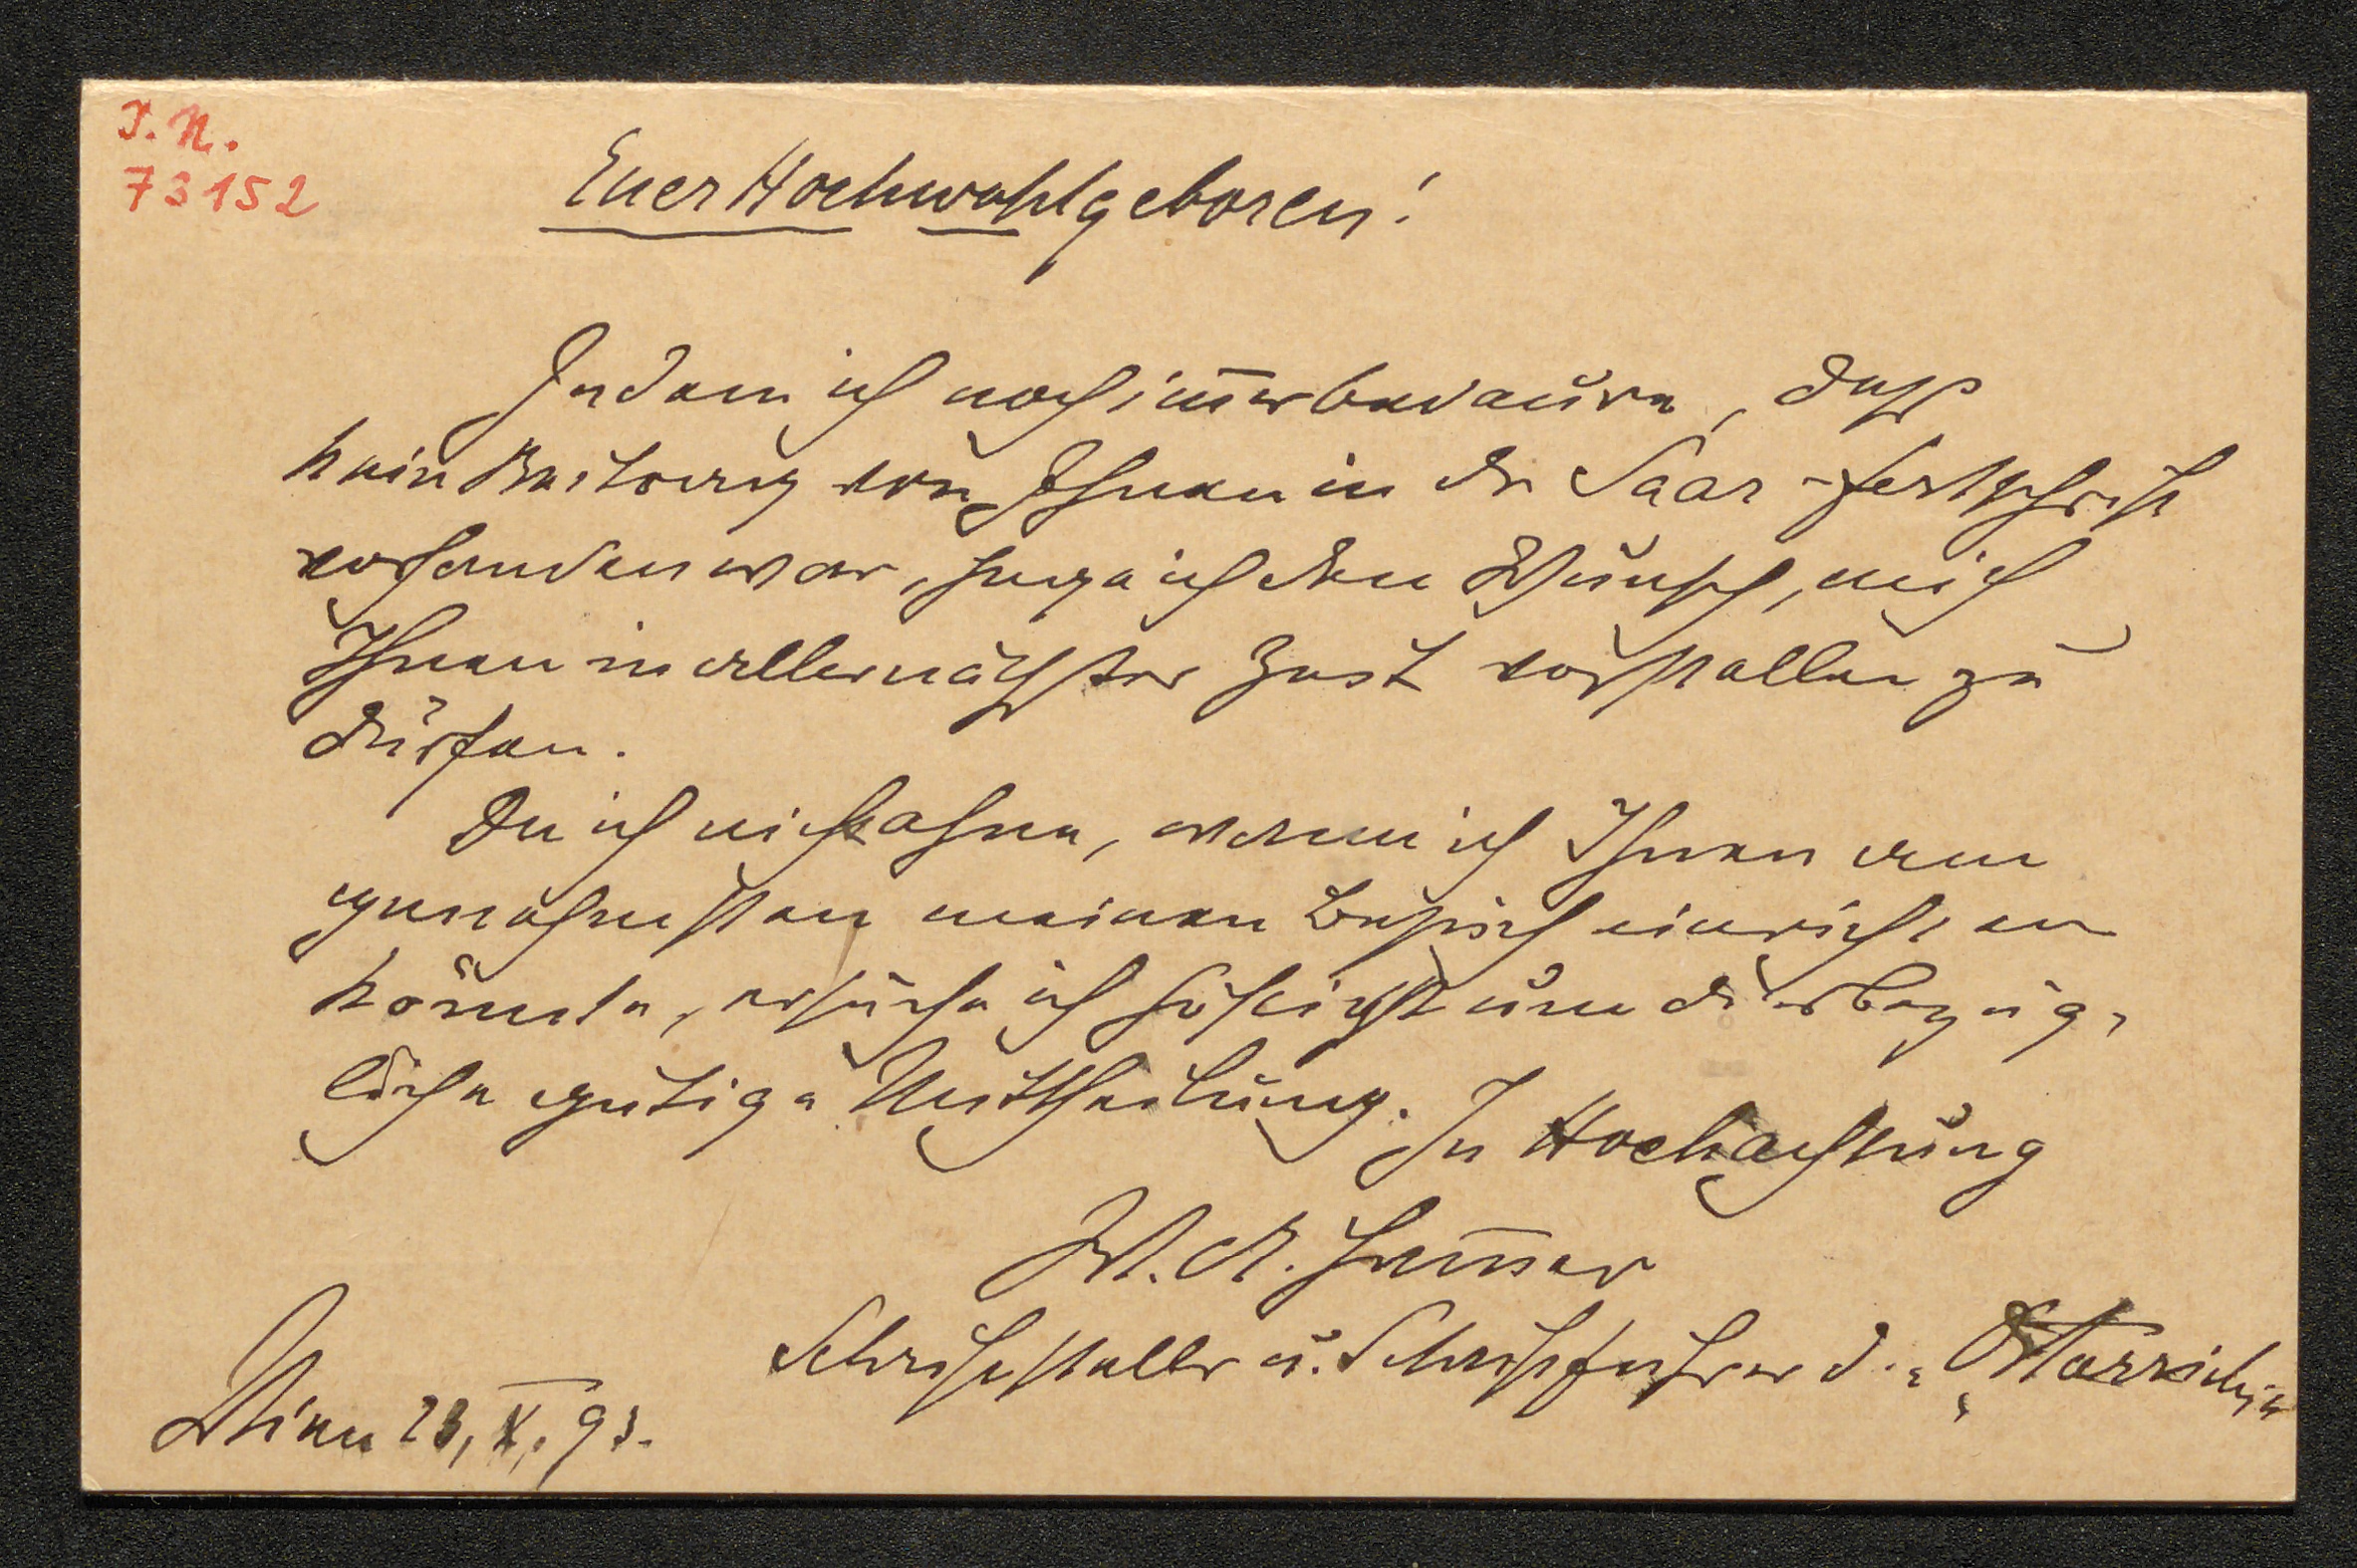 I. N.
73152
Euer Hochwohlgeboren!
Indem ich noch im̄er bedaure, daß
kein Beitrag von Ihnen in der Saar-Festschrift
vorhanden war, hege ich den Wunsch, mich
Ihnen in allernächster Zeit vorstellen zu
dürfen.
Da ich nicht ahne, wann ich Ihnen am
genehmsten meinen Besuch einrichten
könnte, ersuche ich höflichst um diesbezüg-
liche gütige Mittheilung. In Hochachtung
W. A. Ham̄er
Schriftsteller u. Schriftführer d. „Ostarrichi“
Wien 23. X. 93.